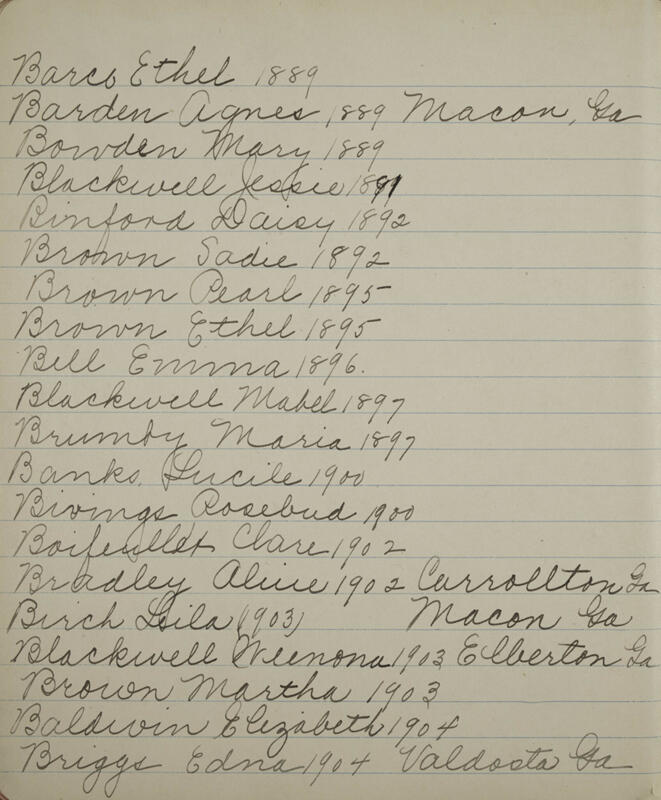 Barco Ethel 1889
Barden Agnes 1889 Macon, Ga
Bowden Mary 1889
Blackwell Jessie 1891
Binford Daisy 1892
Brown Sadie 1892
Brown Pearl 1895
Brown Ethel 1895
Bell Emma 1896.
Blackwell Mabel 1897
Brumby Maria 1897
Banks, Lucile 1900
Bivings Rosebud 1900
Boifeullet Clare 1902
Bradley Alice 1902 Carrollton Ga
Birch Lila (1903) Macon Ga
Blackwell Weenona 1903 Elberton Ga
Brown Martha 1903
Baldwin Elizabeth 1904
Briggs Edna 1904 Valdosta Ga